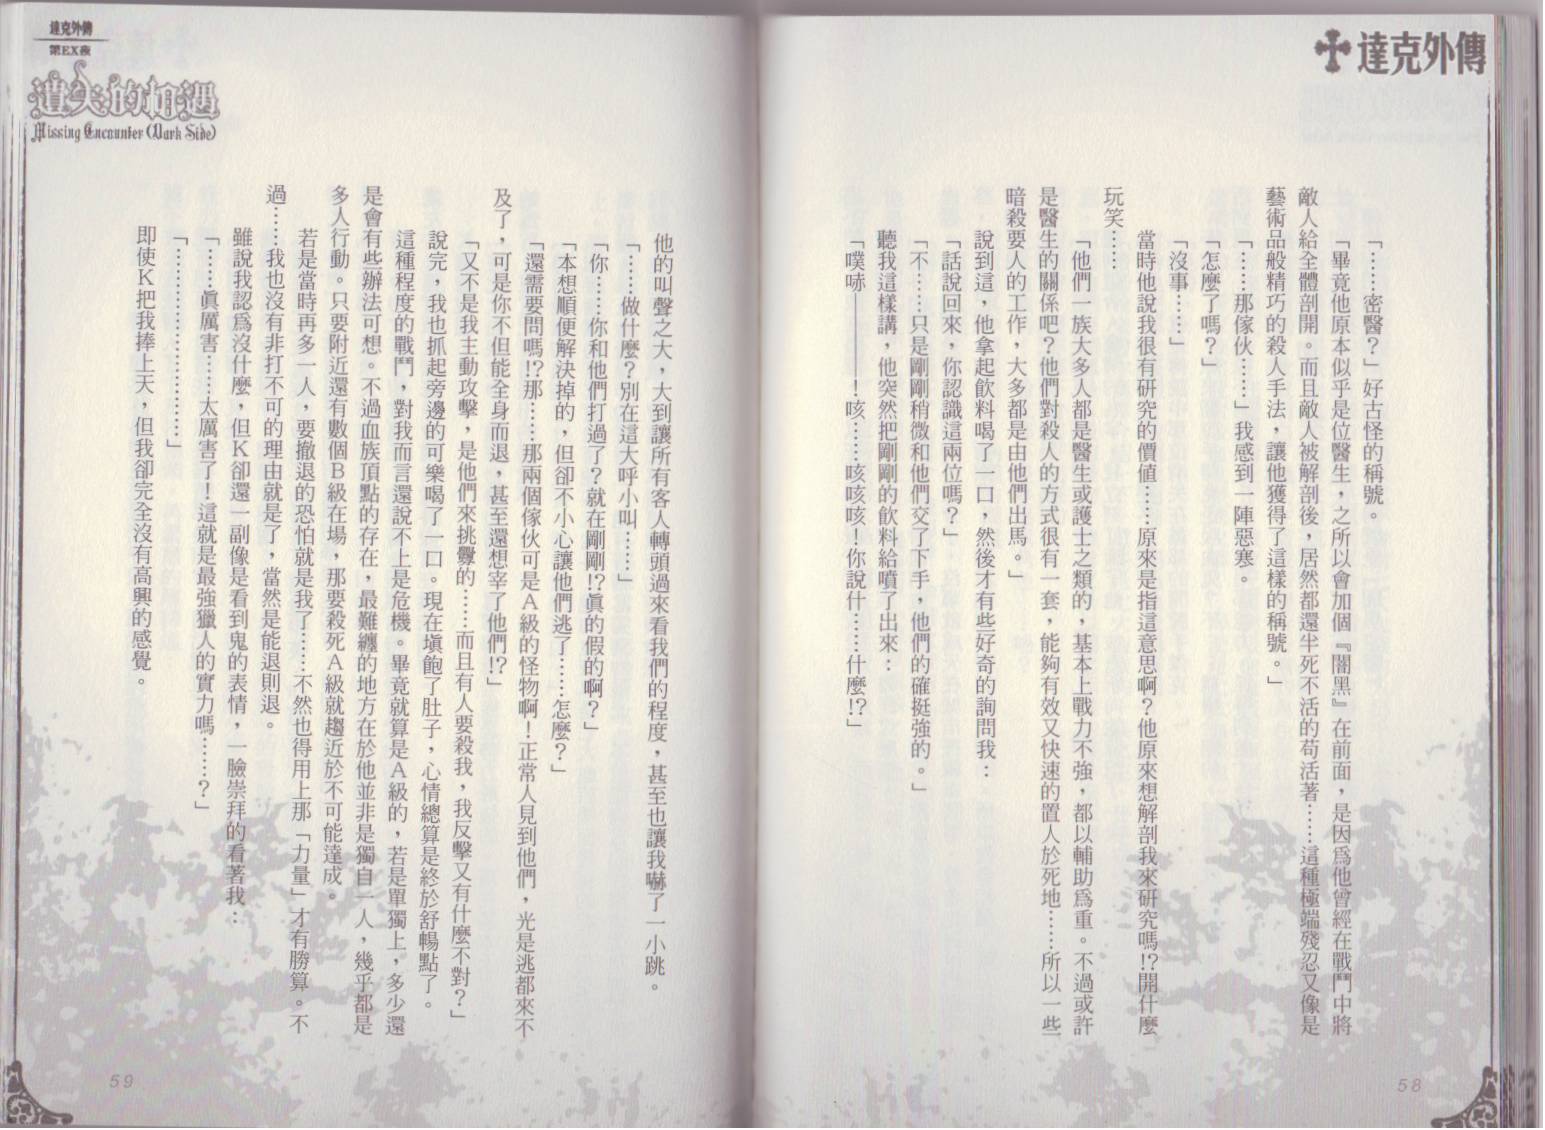 達克外傳
「……密醫？」好古怪的稱號。
「畢竟他原本似乎是位醫生，之所以會加個『闇黑』在前面，是因爲他曾經在戰鬥中將
敵人給全體剖開。而且敵人被解剖後，居然都還半死不活的苟活著……這種極端殘忍又像是
藝術品般精巧的殺人手法，讓他獲得了這樣的稱號。」
「……那傢伙……」我感到一陣惡寒。
「怎麼了嗎？」
「沒事……」
當時他說我很有研究的價値……原來是指這意思啊？他原來想解剖我來研究嗎!?開什麼
玩笑……
「他們一族大多人都是醫生或護士之類的，基本上戰力不強，都以輔助爲重。不過或許
是醫生的關係吧？他們對殺人的方式很有一套，能夠有效又快速的置人於死地……所以一些
暗殺要人的工作，大多都是由他們出馬。」
說到這，他拿起飲料喝了一口，然後才有些好奇的詢問我：
「話說回來，你認識這兩位嗎？」
「不……只是剛剛稍微和他們交了下手，他們的確挺強的。」
聽我這樣講，他突然把剛剛的飲料給噴了出來：
「噗哧————！咳……咳咳咳！你說什……什麼!?」
58
達克外傳
第EX夜
遺失的相遇
Missing Encounter (Dark Side)
他的叫聲之大，大到讓所有客人轉頭過來看我們的程度，甚至也讓我嚇了一小跳。
「……做什麼？別在這大呼小叫……」
「你……你和他們打過了？就在剛剛!?眞的假的啊？」
「本想順便解決掉的，但卻不小心讓他們逃了……怎麼？」
「還需要問嗎!?那……那兩個傢伙可是Ａ級的怪物啊！正常人見到他們，光是逃都來不
及了，可是你不但能全身而退，甚至還想宰了他們!?」
「又不是我主動攻擊，是他們來挑釁的……而且有人要殺我，我反擊又有什麼不對？」
說完，我也抓起旁邊的可樂喝了一口。現在塡飽了肚子，心情總算是終於舒暢點了。
這種程度的戰鬥，對我而言還說不上是危機。畢竟就算是Ａ級的，若是單獨上，多少還
是會有些辦法可想。不過血族頂點的存在，最難纏的地方在於他並非是獨自一人，幾乎都是
多人行動。只要附近還有數個Ｂ級在場，那要殺死Ａ級就趨近於不可能達成。
若是當時再多一人，要撤退的恐怕就是我了……不然也得用上那「力量」才有勝算。不
過……我也沒有非打不可的理由就是了，當然是能退則退。
雖說我認爲沒什麼，但Ｋ卻還一副像是看到鬼的表情，一臉崇拜的看著我：
「……眞厲害……太厲害了！這就是最強獵人的實力嗎……？」
「…………………………」
即使Ｋ把我捧上天，但我卻完全沒有高興的感覺。
59